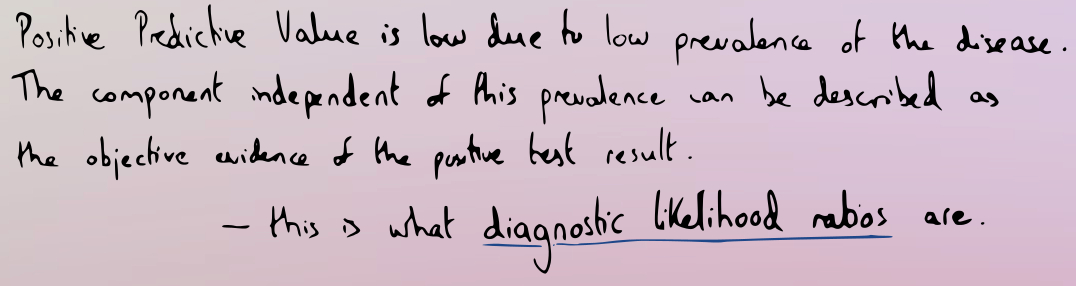 Positive Predictive Value is low due to low prevalence of the disease.
The component independent of this prevalence can be described as
the objective evidence of the positive test result.
– this is what diagnostic likelihood ratios are.